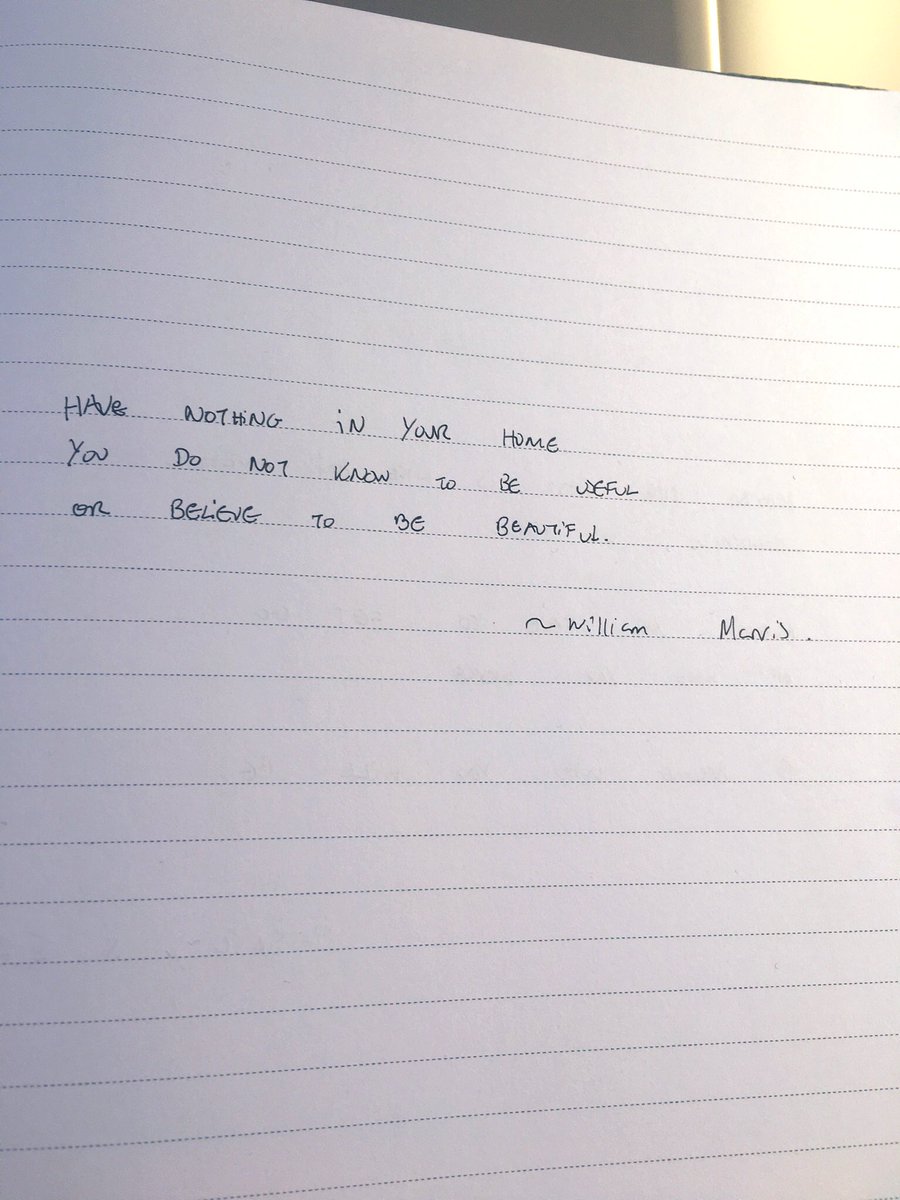 HAVE NOTHING IN YOUR HOME
YOU DO NOT KNOW TO BE USEFUL
OR BELIEVE TO BE BEAUTIFUL.
~ William Morris.